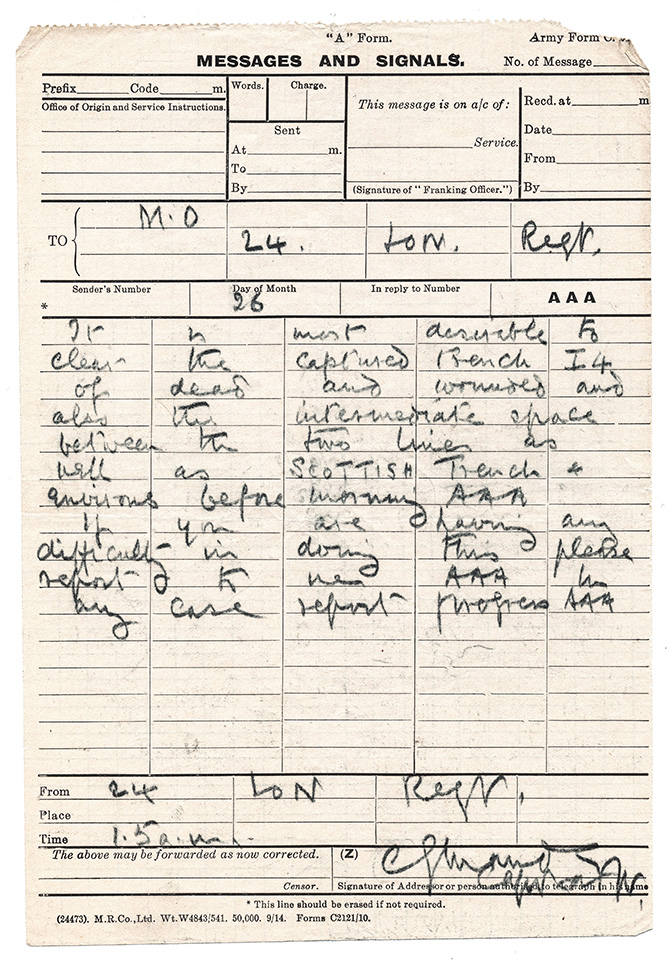 "A" Form. Army Form
MESSAGES AND SIGNALS. No. of Message
Prefix Code m. Words. Charge. This message is on a/c of: Recd. at m
Office of Origin and Service Instructions.
Sent Date
At m. Service. From
To
By (Signature of "Franking Officer.") By
TO M.O
24. LON. Regt.
Sender's Number Day of Month In reply to Number AAA
* 26
It is most desirable to
clear the captured trench I4
of dead and wounded and
also the intermediate space
between the two lines as
well as SCOTTISH Trench &
environs before morning AAA
If you are having any
difficulty in doing this please
report to me AAA In
any case report progress AAA
From 24 LON Regt.
Place
Time 1.5 a.m.
The above may be forwarded as now corrected. (Z)
Censor. Signature of Addressor or person authorised to telegraph in his name
* This line should be erased if not required.
(24473). M.R.Co.,Ltd. Wt.W4843/541. 50,000. 9/14. Forms C2121/10.